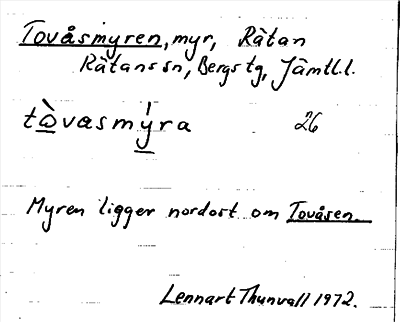 Tovåsmyren, myr, Rätan
Rätans sn, Bergs tg, Jämtl.l.
tòvasmýra 26
Myren ligger nordost om Tovåsen.
Lennart Thunvall 1972.